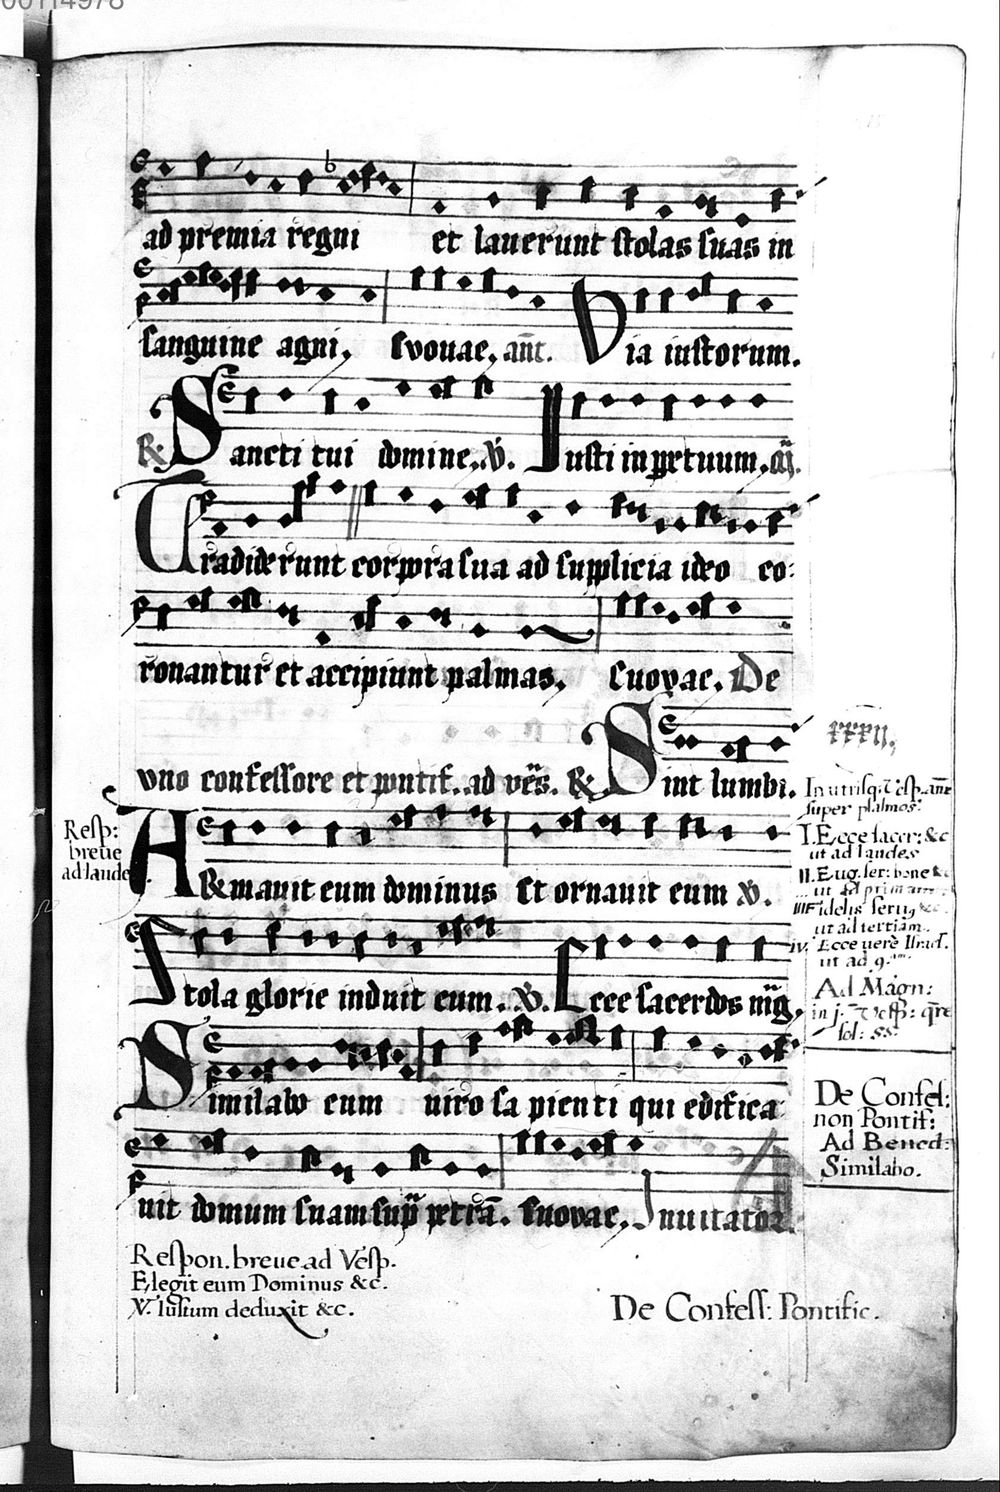 00114978
ad premia regni et lauerunt stolas suas in
sanguine agni, Evovae, ant̄. Via iustorum.
℟ Sancti tui domine,. ℣. Iusti in ꝑpetuum.
Tradiderunt corpora sua ad supplicia ideo co:
ronantur et accipiunt palmas, Euovae. De
xxxii.
vno confessore et pontif.. ad ves̄. ℟. Sint lumbi.
In utrisq; Vesp. ane
super psalmos:
I. Ecce sacer: &c
ut ad laudes
II. Eug. ser: bone &c
ut ad primam
III Fidelis seru9 &c.
ut ad tertiam.
iv. Ecce vere Israel.
ut ad 9.am
Ad Magn:
in j. Vesp: qre
fol: 55.
Resp:
breue
ad laude
Amauit eum dominus Et ornauit eum ℣.
Stola glorie induit eum. ℣. Ecce sacerdos mag,
Similabo eum uiro sapienti qui edifica
De Confes:
non Pontif:
Ad Bened:
Similabo.
uit domum suam supra petrā. Euovae. Inuitator
Respon. breue ad Vesp.
Elegit eum Dominus &c.
V. Iustum deduxit &c.
De Confess: Pontific.